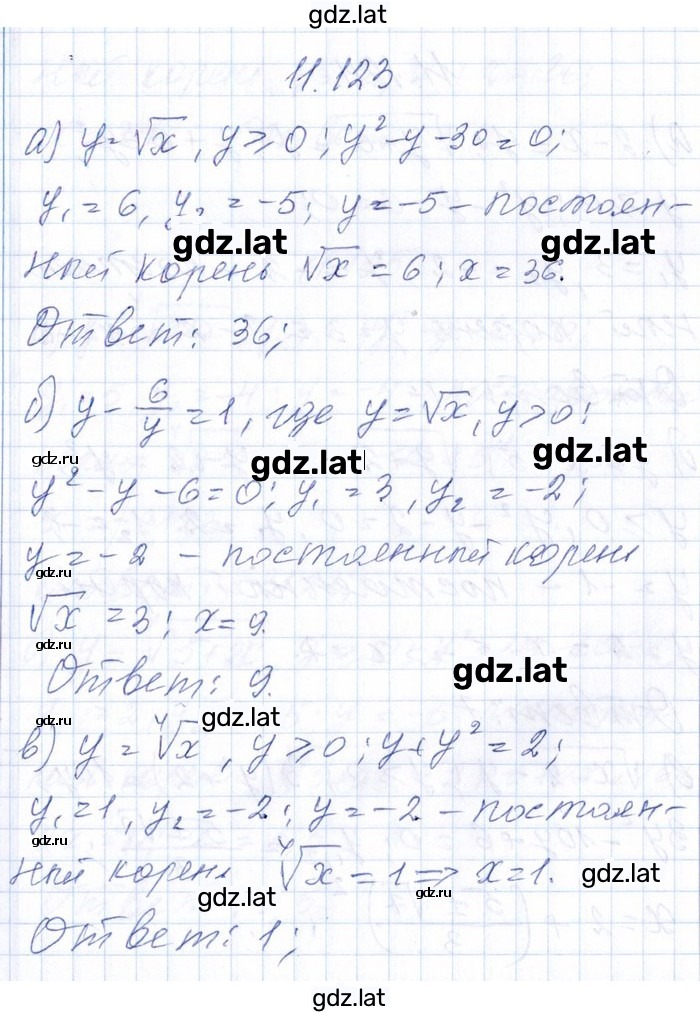 gdz.lat
11.123
а) y=√x, y⩾0; y²-y-30=0;
y₁=6, y₂=-5; y=-5 - постоян-
gdz.lat gdz.lat
ный корень √x=6; x=36.
Ответ: 36;
б) y - 6/y = 1, где y=√x, y>0;
gdz.ru gdz.lat gdz.lat
y²-y-6=0; y₁=3, y₂=-2;
y=-2 - постоянный корень
gdz.ru
√x=3; x=9.
gdz.ru
Ответ: 9.
gdz.lat
gdz.ru gdz.lat
в) y=⁴√x, y⩾0; y+y²=2;
y₁=1, y₂=-2; y=-2 - постоян-
gdz.ru
ный корень ⁴√x=1 => x=1.
gdz.lat gdz.ru gdz.lat
Ответ: 1;
gdz.lat